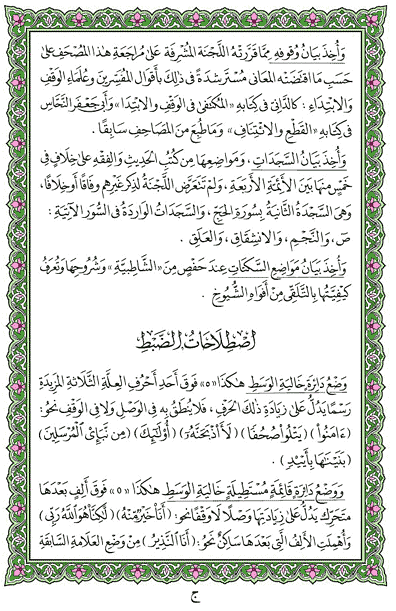 وَأُخِذَ بَيَانُ وُقُوفِهِ مِمَّا قَرَّرَتْهُ اللَّجْنَةُ المُشْرِفَةُ عَلَى مُرَاجَعَةِ هٰذَا المُصْحَفِ عَلَى
حَسَبِ مَا اقْتَضَتْهُ المَعَانِى مُسْتَرْشِدَةً فِى ذٰلِكَ بِأَقْوَالِ المُفَسِّرِينَ وَعُلَمَاءِ الوَقْفِ
وَالابْتِدَاءِ : كَالدَّانِى فِى كِتَابِهِ «المُكْتَفَى فِى الوَقْفِ وَالابْتِدَا» وَأَبِى جَعْفَرٍ النَّحَّاسِ
فِى كِتَابِهِ «القَطْعِ وَالائْتِنَافِ» وَمَا طُبِعَ مِنَ المَصَاحِفِ سَابِقًا .
وَأُخِذَ بَيَانُ السَّجَدَاتِ ، وَمَوَاضِعِهَا مِنْ كُتُبِ الحَدِيثِ وَالفِقْهِ عَلَى خِلَافٍ فِى
خَمْسٍ مِنْهَا بَيْنَ الأَئِمَّةِ الأَرْبَعَةِ ، وَلَمْ تَتَعَرَّضِ اللَّجْنَةُ لِذِكْرِ غَيْرِهِمْ وِفَاقًا أَوْ خِلَافًا ،
وَهِىَ السَّجْدَةُ الثَّانِيَةُ بِسُورَةِ الحَجِّ ، وَالسَّجَدَاتُ الوَارِدَةُ فِى السُّوَرِ الآتِيَةِ :
صٓ ، وَالنَّجْمِ ، وَالانْشِقَاقِ ، وَالعَلَقِ .
وَأُخِذَ بَيَانُ مَوَاضِعِ السَّكَتَاتِ عِنْدَ حَفْصٍ مِنَ «الشَّاطِبِيَّةِ» وَشُرُوحِهَا وَتُعْرَفُ
كَيْفِيَّتُهَا بِالتَّلَقِّى مِنْ أَفْوَاهِ الشُّيُوخِ .
اصْطِلَاحَاتُ الضَّبْطِ
وَضْعُ دَائِرَةٍ خَالِيَةِ الوَسَطِ هٰكَذَا «o» فَوْقَ أَحَدِ أَحْرُفِ العِلَّةِ الثَّلَاثَةِ المَزِيدَةِ
رَسْمًا يَدُلُّ عَلَى زِيَادَةِ ذٰلِكَ الحَرْفِ ، فَلَا يُنْطَقُ بِهِ فِى الوَصْلِ وَلَا فِى الوَقْفِ نَحْوُ :
(ءَامَنُواْ) (يَتْلُواْ صُحُفًا) (لَأَاْذْبَحَنَّهُۥٓ) (أُوْلَٰٓئِكَ) (مِن نَّبَإِيْ ٱلْمُرْسَلِينَ)
(بَنَيْنَٰهَا بِأَيْيْدٍ) .
وَوَضْعُ دَائِرَةٍ قَائِمَةٍ مُسْتَطِيلَةٍ خَالِيَةِ الوَسَطِ هٰكَذَا «٥» فَوْقَ أَلِفٍ بَعْدَهَا
مُتَحَرِّكٌ يَدُلُّ عَلَى زِيَادَتِهَا وَصْلًا لَا وَقْفًا نَحْوُ : (أَنَا۠ خَيْرٌ مِّنْهُ) (لَّٰكِنَّا۠ هُوَ ٱللَّهُ رَبِّى)
وَأُهْمِلَتِ الأَلِفُ الَّتِى بَعْدَهَا سَاكِنٌ نَحْوُ : (أَنَا ٱلنَّذِيرُ) مِنْ وَضْعِ العَلَامَةِ السَّابِقَةِ
ج